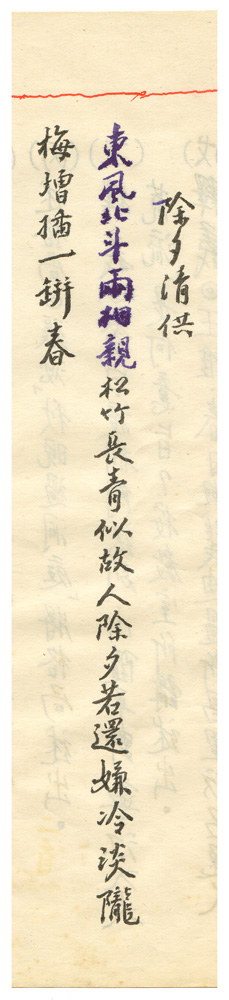 除夕清供
東風北斗兩相親松竹長青似故人除夕若還嫌冷淡隴
梅增插一缾春